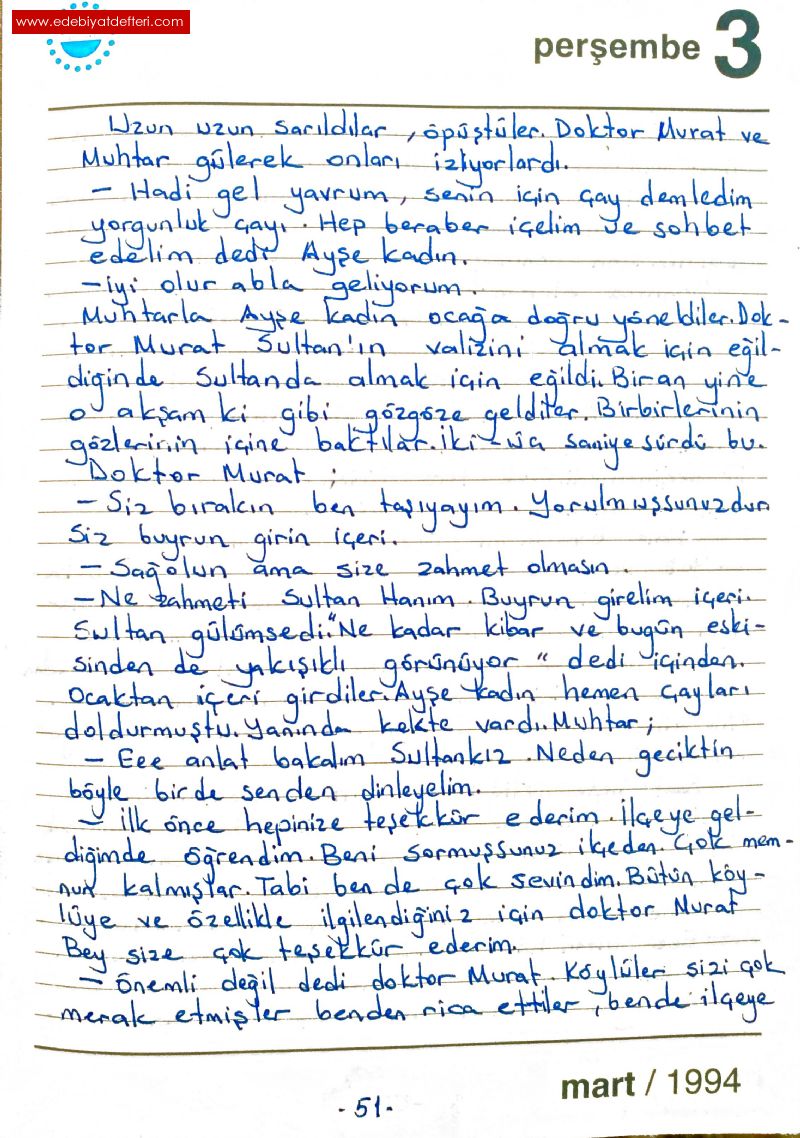 www.edebiyatdefteri.com
perşembe 3
Uzun uzun sarıldılar, öpüştüler. Doktor Murat ve
Muhtar gülerek onları izliyorlardı.
- Hadi gel yavrum, senin için çay demledim
yorgunluk çayı. Hep beraber içelim ve sohbet
edelim dedi Ayşe kadın.
- iyi olur abla geliyorum.
Muhtarla Ayşe kadın ocağa doğru yöneldiler. Dok-
tor Murat Sultan'ın valizini almak için eğil-
diğinde Sultanda almak için eğildi. Bir an yine
o akşam ki gibi gözgöze geldiler. Birbirlerinin
gözlerinin içine baktılar. iki - saniye sürdü bu.
Doktor Murat ;
- Siz bırakın ben taşıyayım. Yorulmuşsunuzdur
Siz buyrun girin içeri.
- Sağolun ama size zahmet olmasın.
- Ne zahmeti Sultan Hanım. Buyrun girelim içeri.
Sultan gülümsedi. "Ne kadar kibar ve bugün eski-
sinden de yakışıklı görünüyor" dedi içinden.
Ocaktan içeri girdiler. Ayşe kadın hemen çayları
doldurmuştu. Yanında kekte vardı. Muhtar;
- Eee anlat bakalım Sultankız. Neden geciktin
böyle birde senden dinleyelim.
- ilk önce hepinize teşekkür ederim. İlçeye gel-
diğimde öğrendim. Beni sormuşsunuz ilçeden. Çok mem-
nun kalmışlar. Tabi ben de çok sevindim. Bütün köy-
lüye ve özellikle ilgilendiğiniz için doktor Murat
Bey size çok teşekkür ederim.
- Önemli değil dedi doktor Murat. Köylüler sizi çok
merak etmişler benden rica ettiler, bende ilçeye
mart / 1994
- 51 -